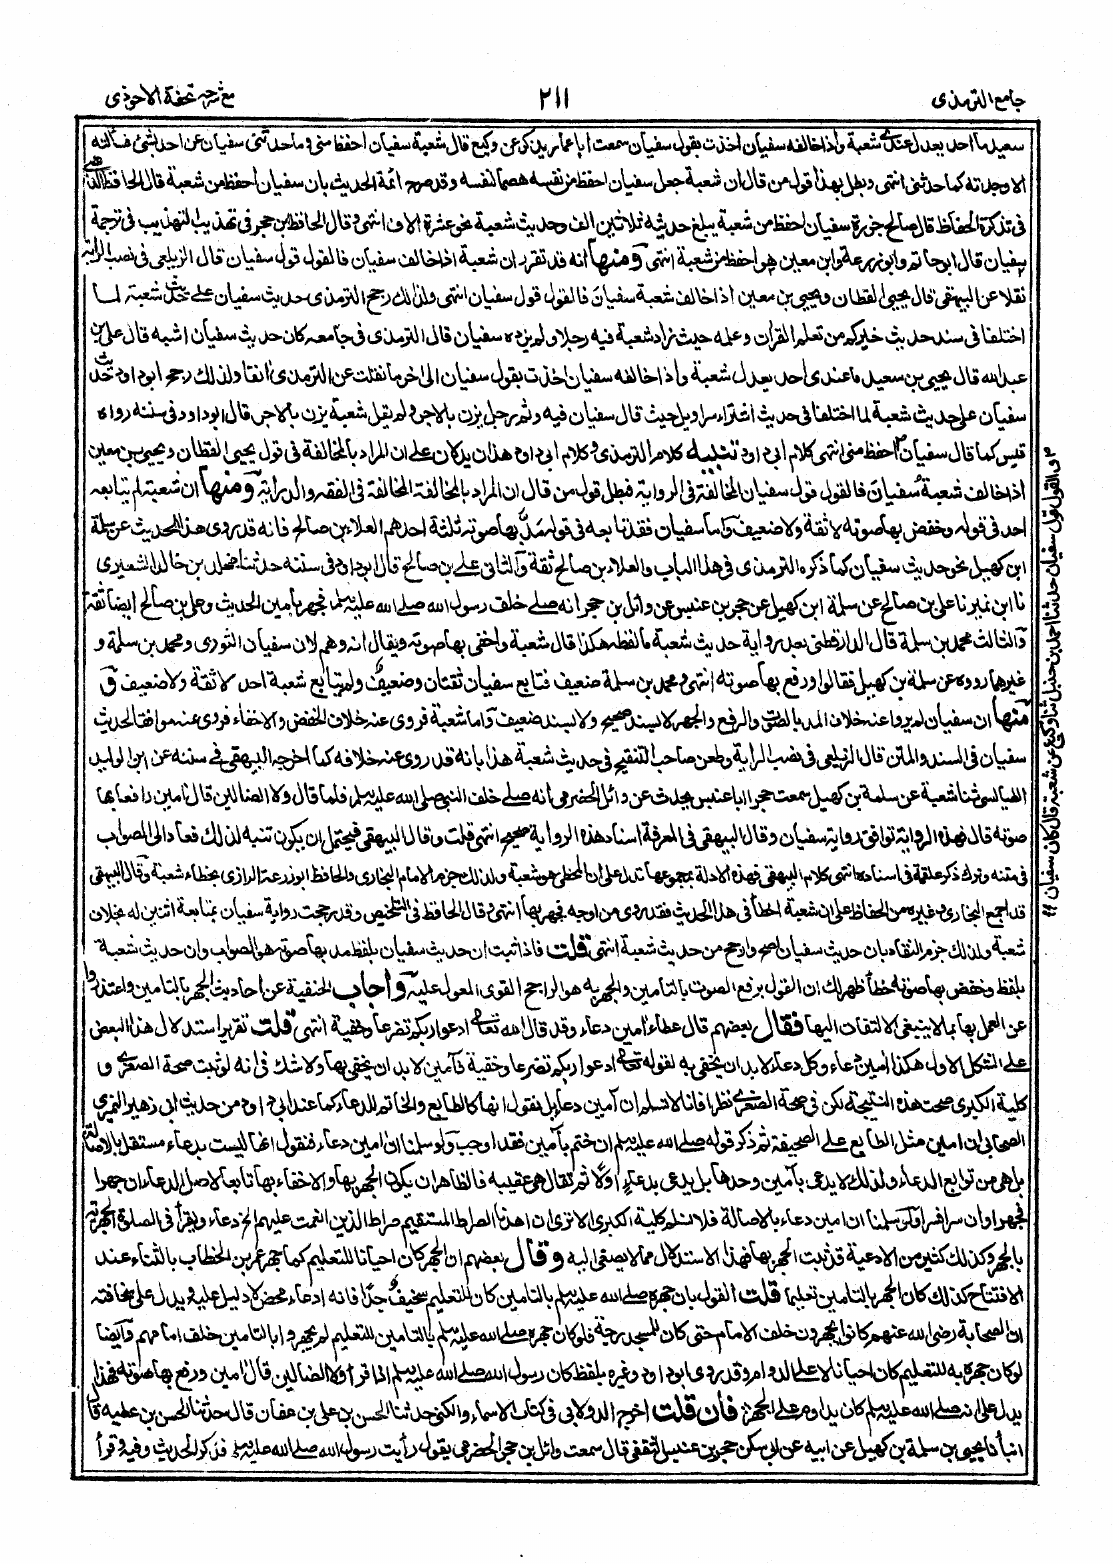 جامع الترمذى
٢١١
مع شرحه تحفة الاحوذى
سعيد ما احد يعدل عندى شعبة واذا خالفه سفيان اخذت بقول سفيان سمعت ابا عمار يذكر عن وكيع قال شعبة سفيان احفظ منى وما حدثنى سفيان عن احد بشئ فسألته
الا وجدته كما حدثنى انتهى وبطل بهذا قول من قال ان شعبة جعل سفيان احفظ من نفسه هضما لنفسه وقد صرح ائمة الحديث بان سفيان احفظ من شعبة قال الحافظ الذهبى
فى تذكرة الحفاظ قال صالح جزرة سفيان احفظ من شعبة يبلغ حديثه ثلاثين الف وحديث شعبة نحو عشرة الاف انتهى وقال الحافظ ابن حجر فى تهذيب التهذيب فى ترجمة
سفيان قال ابو حاتم وابو زرعة وابن معين هو احفظ من شعبة انتهى ومنها انه قد تقرر ان شعبة اذا خالف سفيان فالقول قول سفيان قال الزيلعى فى نصب الراية
نقلا عن البيهقى قال يحيى القطان ويحيى بن معين اذا خالف شعبة سفيان فالقول قول سفيان انتهى ولذلك رجح الترمذى حديث سفيان على حديث شعبة لما
اختلفا فى سند حديث خيركم من تعلم القرآن وعلمه حيث زاد شعبة فيه رجلا ولم يزده سفيان قال الترمذى فى جامعه كان حديث سفيان اشبه قال على بن
عبد الله قال يحيى بن سعيد ما عندى احد يعدل شعبة واذا خالفه سفيان اخذت بقول سفيان الى اخر ما نقلت عن الترمذى انفا ولذلك رجح ابو داود حديث
سفيان على حديث شعبة لما اختلفا فى حديث اشتراء سراويل حيث قال سفيان فيه وثم رجل يزن بالاجر ولم يقل شعبة يزن بالاجر قال ابو داود فى سننه رواه
قيس كما قال سفيان احفظ منى انتهى كلام ابى داود تنبيه كلام الترمذى وكلام ابى داود هذان يدلان على ان المراد بالمخالفة فى قول يحيى القطان ويحيى بن معين
اذا خالف شعبة سفيان فالقول قول سفيان المخالفة فى الرواية فبطل قول من قال ان المراد بالمخالفة المخالفة فى الفقه والدراية ومنها ان شعبة لم يتابعه
احد فى قوله وخفض بها صوته لا ثقة ولا ضعيف واما سفيان فقد تابعه فى قوله مد بها صوته ثلثة احدهم العلاء بن صالح فانه قد روى هذا الحديث عن سلمة
ابن كهيل نحو حديث سفيان كما ذكره الترمذى فى هذا الباب والعلاء بن صالح ثقة والثانى على بن صالح قال ابو داود فى سننه حدثنا مخلد بن خالد الشعيرى
نا ابن نمير نا على بن صالح عن سلمة ابن كهيل عن حجر بن عنبس عن وائل بن حجر انه صلى خلف رسول الله صلى الله عليه وسلم فجهر بآمين الحديث وعلى بن صالح ايضا ثقة
والثالث محمد بن سلمة قال الدارقطنى بعد رواية حديث شعبة ما لفظه هكذا قال شعبة واخفى بها صوته ويقال انه وهم لان سفيان الثورى ومحمد بن سلمة و
غيرهما رووه عن سلمة بن كهيل فقالوا ورفع بها صوته انتهى ومحمد بن سلمة ضعيف فتابع سفيان ثقتان وضعيف ولم يتابع شعبة احد لا ثقة ولا ضعيف و
منها ان سفيان لم يرو عنه خلاف المد بالصوت والرفع والجهر لا بسند صحيح ولا بسند ضعيف واما شعبة فروى عنه خلاف الخفض والاخفاء فروى عنه موافقا لحديث
سفيان فى السند والمتن قال الزيلعى فى نصب الراية وطعن صاحب التنقيح فى حديث شعبة هذا بانه قد روى عنه خلافه كما اخرجه البيهقى فى سننه عن ابى الوليد
الطيالسى ثنا شعبة عن سلمة بن كهيل سمعت حجرا ابا عنبس يحدث عن وائل الحضرمى انه صلى خلف النبى صلى الله عليه وسلم فلما قال ولا الضالين قال آمين رافعا بها
صوته قال فهذه الرواية توافق رواية سفيان وقال البيهقى فى المعرفة اسناد هذه الرواية صحيح انتهى قلت وقال البيهقى فيحتمل ان يكون تنبه لذلك فعاد الى الصواب
فى متنه وترك ذكر علقمة فى اسناده انتهى كلام البيهقى فهذه الادلة بمجموعها تدل على ان المخطئ هو شعبة ولذلك جزم الامام البخارى والحافظ ابو زرعة الرازى بخطاء شعبة وقال البيهقى
قد اجمع البخارى وغيره من الحفاظ على ان شعبة اخطأ فى هذا الحديث فقد روى من اوجه فجهر بها انتهى وقال الحافظ فى التلخيص وقد رجحت رواية سفيان بمتابعة اثنين له بخلاف
شعبة ولذلك جزم النقاد بان حديث سفيان اصح وارجح من حديث شعبة انتهى قلت فاذا ثبت ان حديث سفيان بلفظ مد بها صوته هو الصواب وان حديث شعبة
بلفظ وخفض بها صوته خطأ ظهر لك ان القول برفع الصوت بالتأمين والجهر به هو الراجح القوى المعول عليه واجاب الحنفية عن احاديث الجهر بالتامين واعتذروا
عن العمل بها بما لا ينبغى الالتفات اليها فقال بعضهم قال عطاء آمين دعاء وقد قال الله تعالى ادعوا ربكم تضرعا وخفية انتهى قلت تقرير استدلال هذا البعض
على الشكل الاول هكذا آمين دعاء وكل دعاء لا بد ان يخفى به لقوله تعالى ادعوا ربكم تضرعا وخفية فآمين لا بد ان يخفى بها ولا شك فى انه لو ثبت صحة الصغرى و
كلية الكبرى صحت هذه النتيجة لكن فى صحة الصغرى نظرا فانا لا نسلم ان آمين دعاء بل نقول انها كالطابع والخاتم للدعاء كما عند ابى داود من حديث ابى زهير النميرى
الصحابى ان امين مثل الطابع على الصحيفة ثم ذكر قوله صلى الله عليه وسلم ان ختم بآمين فقد اوجب ولو سلمنا ان امين دعاء فنقول انها ليست بدعاء مستقل بالاصالة
بل هى من توابع الدعاء ولذلك لا يدعى بآمين وحدها بل يدعى بدعاء اولا ثم تقال هى عقيبه فالظاهر ان يكون الجهر بها والاخفاء بها تابعا لاصل الدعاء ان جهرا
فجهرا وان سرا فسرا ولو سلمنا ان امين دعاء بالاصالة فلا نسلم كلية الكبرى الا ترى ان اهدنا الصراط المستقيم صراط الذين انعمت عليهم الخ دعاء ويقرأ فى الصلاة الجهرية
بالجهر وكذلك كثير من الادعية قد ثبت الجهر بها فهذا الاستدلال مما لا يصغى اليه وقال بعضهم ان الجهر كان احيانا للتعليم كما جهر عمر بن الخطاب بالثناء عند
الافتتاح كذلك كان الجهر بالتامين تعليما قلت القول بان جهره صلى الله عليه وسلم بالتامين كان للتعليم سخيف جدا فانه ادعاء محض لا دليل عليه ويدل على سخافته
ان الصحابة رضى الله عنهم كانوا يجهرون خلف الامام حتى كان للمسجد رجة فلو كان جهره صلى الله عليه وسلم بالتامين للتعليم لم يجهروا بالتامين خلف امامهم وايضا
لو كان جهره به للتعليم كان احيانا لا على الدوام وقد روى ابو داود وغيره بلفظ كان رسول الله صلى الله عليه وسلم اذا قرأ ولا الضالين قال آمين ورفع بها صوته فهذا
يدل على انه صلى الله عليه وسلم كان يداوم على الجهر فان قلت اخرج الدولابى فى كتاب الاسماء والكنى حدثنا الحسن بن على بن عفان قال حدثنا الحسن بن عطية قال
انبأنا يحيى بن سلمة بن كهيل عن ابيه عن ابى سكن حجر بن عنبس الثقفى قال سمعت وائل بن حجر الحضرمى يقول رأيت رسول الله صلى الله عليه وسلم فذكر الحديث وفيه وقرأ
والقول قول سفيان حدثنا احمد بن حنبل ثنا وكيع عن شعبة قال كان سفيان